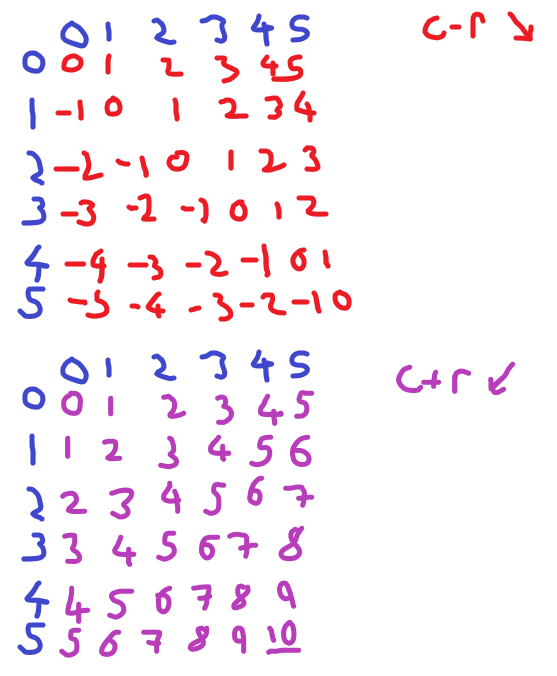 0 1 2 3 4 5 c-r ↘
0 0 1 2 3 4 5
1 -1 0 1 2 3 4
2 -2 -1 0 1 2 3
3 -3 -2 -1 0 1 2
4 -4 -3 -2 -1 0 1
5 -5 -4 -3 -2 -1 0
0 1 2 3 4 5 c+r ↙
0 0 1 2 3 4 5
1 1 2 3 4 5 6
2 2 3 4 5 6 7
3 3 4 5 6 7 8
4 4 5 6 7 8 9
5 5 6 7 8 9 10